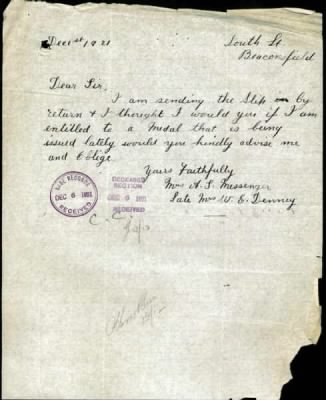 Dec 1st 1921
South St
Beaconsfield
Dear Sir,
I am sending the Slip on by
return & I thought I would you if I am
entitled to a Medal that is being
issued lately would you kindly advise me
and Oblige
Yours Faithfully
Mrs A. S. Messenger
Late Mrs W. E. Denney
BASE RECORDS
DEC 6 1921
RECEIVED
DECEASED
SECTION
DEC 6 1921
RECEIVED